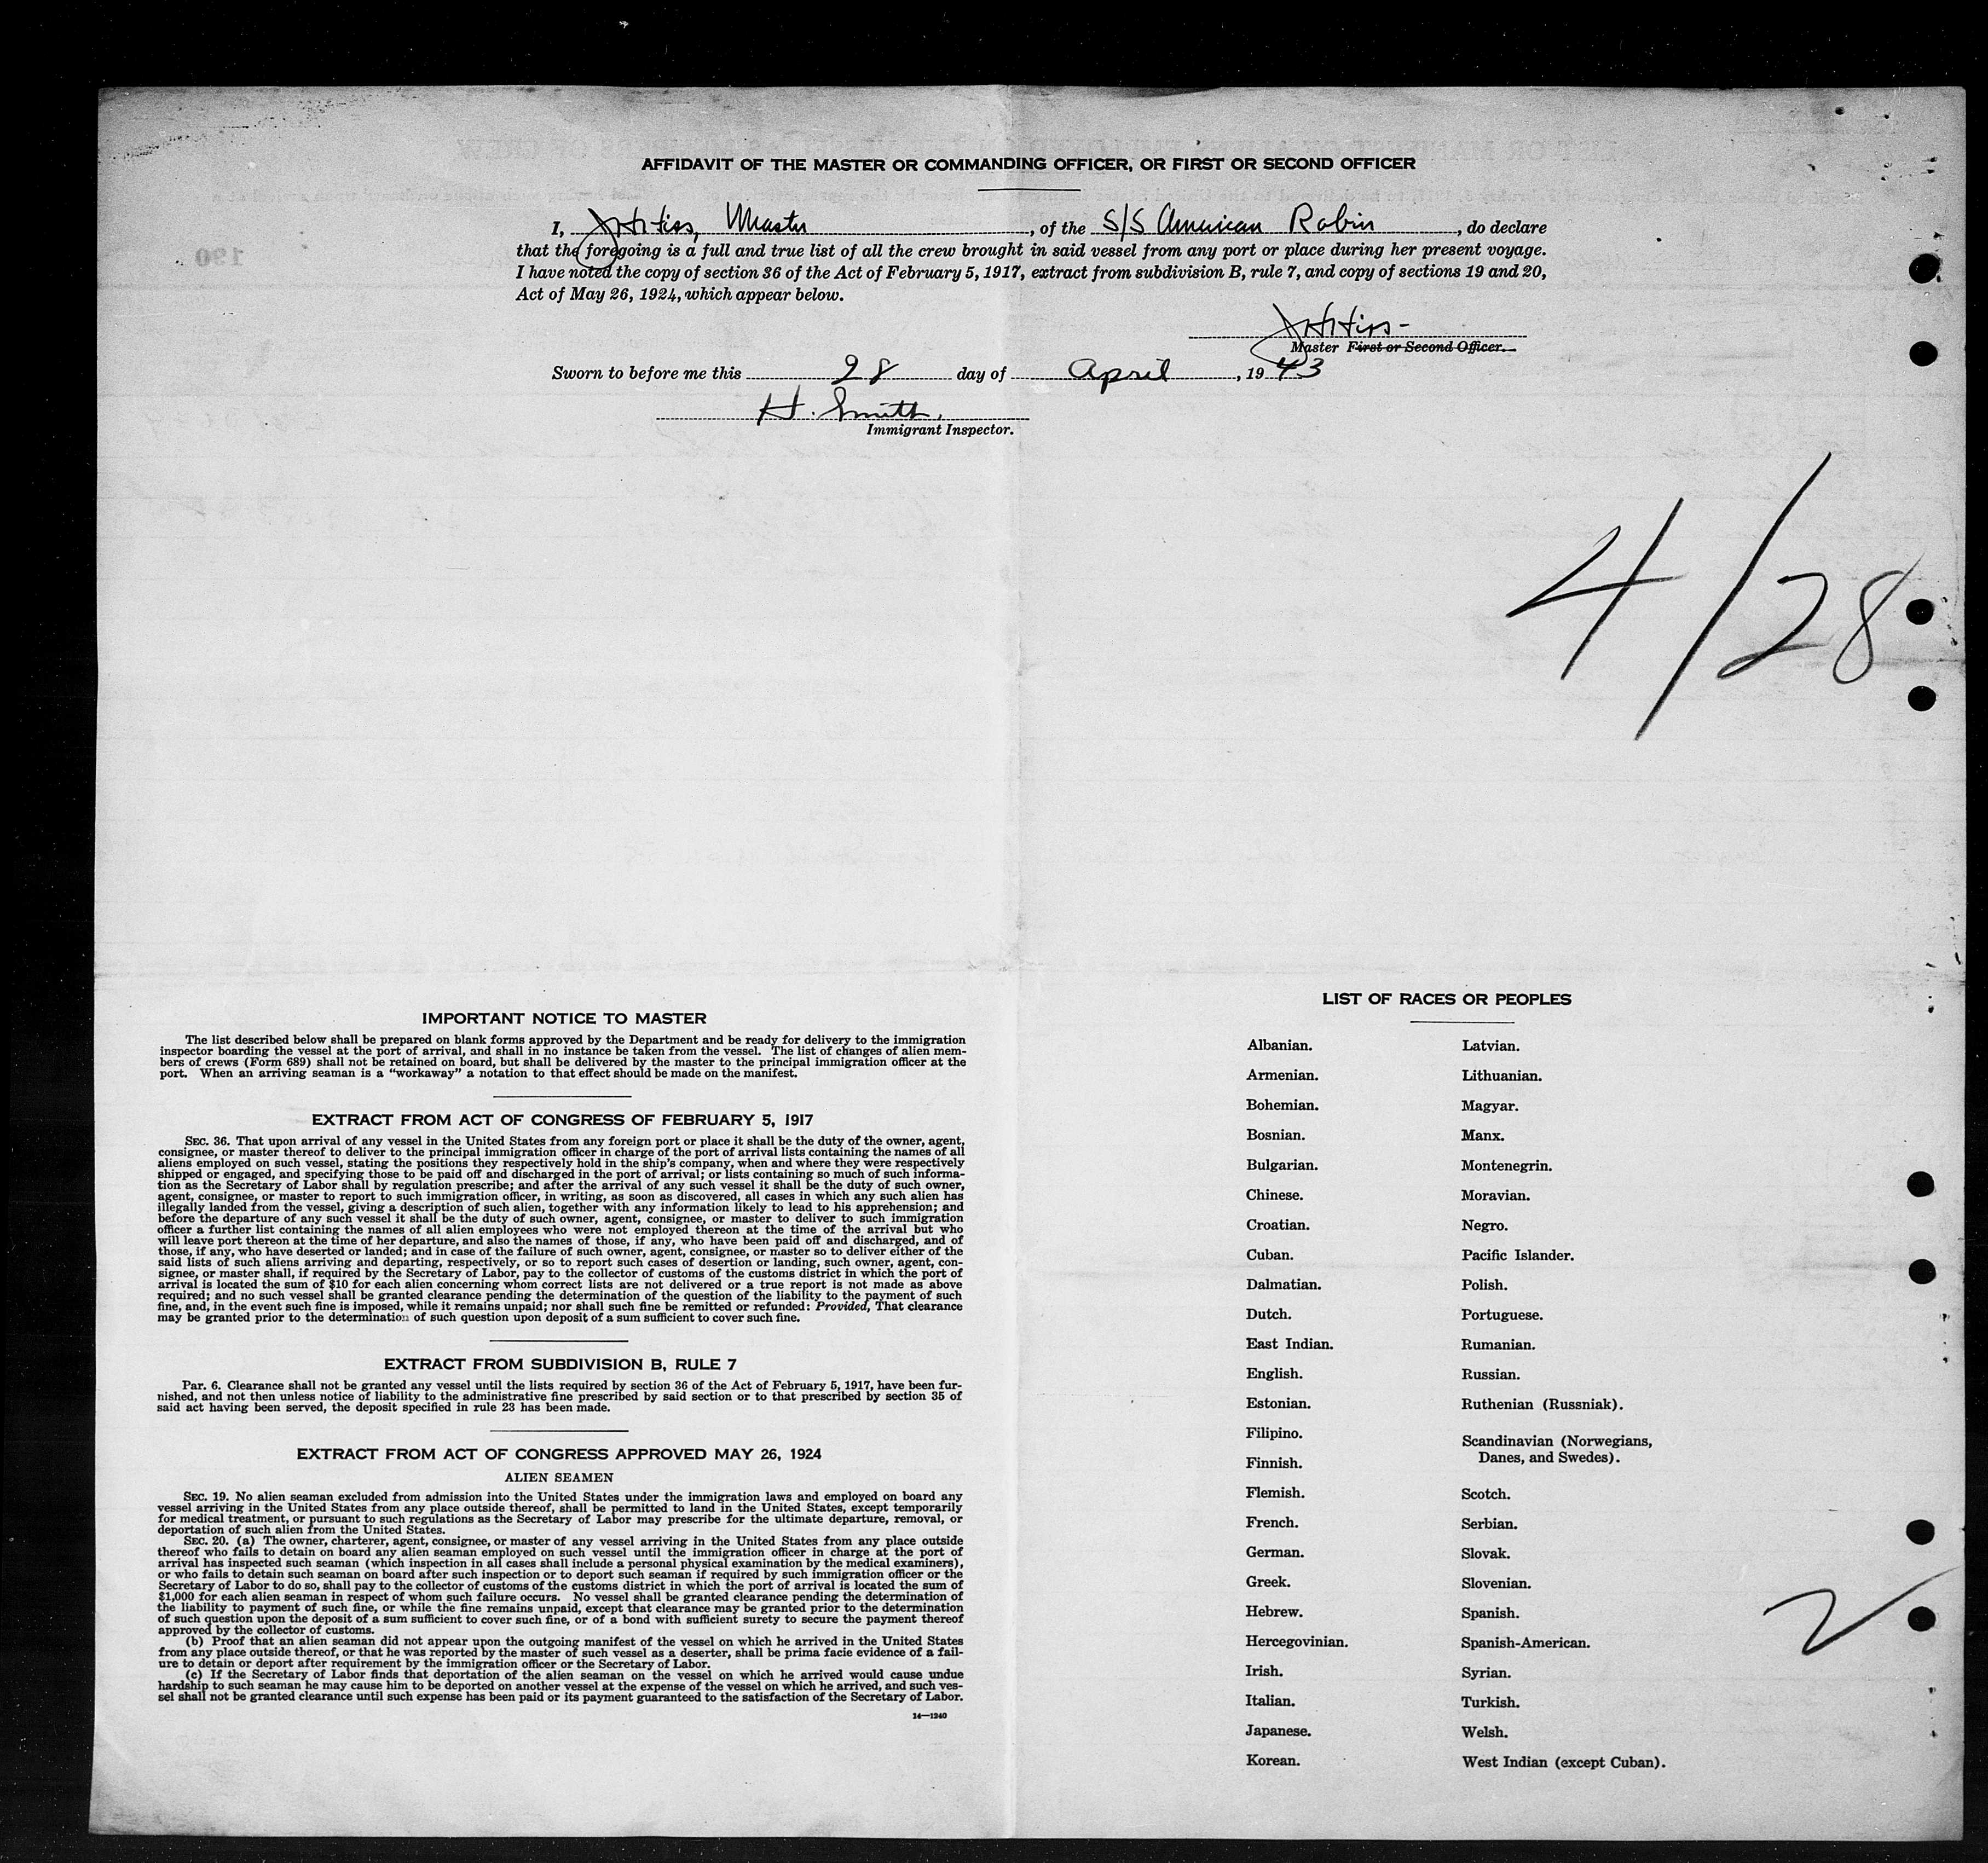 AFFIDAVIT OF THE MASTER OR COMMANDING OFFICER, OR FIRST OR SECOND OFFICER
I, Master, of the S/S American Robin, do declare
that the foregoing is a full and true list of all the crew brought in said vessel from any port or place during her present voyage.
I have noted the copy of section 36 of the Act of February 5, 1917, extract from subdivision B, rule 7, and copy of sections 19 and 20,
Act of May 26, 1924, which appear below.
Master First or Second Officer.
Sworn to before me this 28 day of April, 1943
H. Smith
Immigrant Inspector.
4/28
190
IMPORTANT NOTICE TO MASTER
The list described below shall be prepared on blank forms approved by the Department and be ready for delivery to the immigration
inspector boarding the vessel at the port of arrival, and shall in no instance be taken from the vessel. The list of changes of alien mem-
bers of crews (Form 689) shall not be retained on board, but shall be delivered by the master to the principal immigration officer at the
port. When an arriving seaman is a "workaway" a notation to that effect should be made on the manifest.
EXTRACT FROM ACT OF CONGRESS OF FEBRUARY 5, 1917
SEC. 36. That upon arrival of any vessel in the United States from any foreign port or place it shall be the duty of the owner, agent,
consignee, or master thereof to deliver to the principal immigration officer in charge of the port of arrival lists containing the names of all
aliens employed on such vessel, stating the positions they respectively hold in the ship's company, when and where they were respectively
shipped or engaged, and specifying those to be paid off and discharged in the port of arrival; or lists containing so much of such informa-
tion as the Secretary of Labor shall by regulation prescribe; and after the arrival of any such vessel it shall be the duty of such owner,
agent, consignee, or master to report to such immigration officer, in writing, as soon as discovered, all cases in which any such alien has
illegally landed from the vessel, giving a description of such alien, together with any information likely to lead to his apprehension; and
before the departure of any such vessel it shall be the duty of such owner, agent, consignee, or master to deliver to such immigration
officer a further list containing the names of all alien employees who were not employed thereon at the time of the arrival but who
will leave port thereon at the time of her departure, and also the names of those, if any, who have been paid off and discharged, and of
those, if any, who have deserted or landed; and in case of the failure of such owner, agent, consignee, or master so to deliver either of the
said lists of such aliens arriving and departing, respectively, or so to report such cases of desertion or landing, such owner, agent, con-
signee, or master shall, if required by the Secretary of Labor, pay to the collector of customs of the customs district in which the port of
arrival is located the sum of $10 for each alien concerning whom correct lists are not delivered or a true report is not made as above
required; and no such vessel shall be granted clearance pending the determination of the question of the liability to the payment of such
fine, and, in the event such fine is imposed, while it remains unpaid; nor shall such fine be remitted or refunded: Provided, That clearance
may be granted prior to the determination of such question upon deposit of a sum sufficient to cover such fine.
EXTRACT FROM SUBDIVISION B, RULE 7
Par. 6. Clearance shall not be granted any vessel until the lists required by section 36 of the Act of February 5, 1917, have been fur-
nished, and not then unless notice of liability to the administrative fine prescribed by said section or to that prescribed by section 35 of
said act having been served, the deposit specified in rule 23 has been made.
EXTRACT FROM ACT OF CONGRESS APPROVED MAY 26, 1924
ALIEN SEAMEN
SEC. 19. No alien seaman excluded from admission into the United States under the immigration laws and employed on board any
vessel arriving in the United States from any place outside thereof, shall be permitted to land in the United States, except temporarily
for medical treatment, or pursuant to such regulations as the Secretary of Labor may prescribe for the ultimate departure, removal, or
deportation of such alien from the United States.
SEC. 20. (a) The owner, charterer, agent, consignee, or master of any vessel arriving in the United States from any place outside
thereof who fails to detain on board any alien seaman employed on such vessel until the immigration officer in charge at the port of
arrival has inspected such seaman (which inspection in all cases shall include a personal physical examination by the medical examiners),
or who fails to detain such seaman on board after such inspection or to deport such seaman if required by such immigration officer or the
Secretary of Labor to do so, shall pay to the collector of customs of the customs district in which the port of arrival is located the sum of
$1,000 for each alien seaman in respect of whom such failure occurs. No vessel shall be granted clearance pending the determination of
the liability to payment of such fine, or while the fine remains unpaid, except that clearance may be granted prior to the determination
of such question upon the deposit of a sum sufficient to cover such fine, or of a bond with sufficient surety to secure the payment thereof
approved by the collector of customs.
(b) Proof that an alien seaman did not appear upon the outgoing manifest of the vessel on which he arrived in the United States
from any place outside thereof, or that he was reported by the master of such vessel as a deserter, shall be prima facie evidence of a fail-
ure to detain or deport after requirement by the immigration officer or the Secretary of Labor.
(c) If the Secretary of Labor finds that deportation of the alien seaman on the vessel on which he arrived would cause undue
hardship to such seaman he may cause him to be deported on another vessel at the expense of the vessel on which he arrived, and such ves-
sel shall not be granted clearance until such expense has been paid or its payment guaranteed to the satisfaction of the Secretary of Labor.
14—1240
LIST OF RACES OR PEOPLES
Albanian.
Armenian.
Bohemian.
Bosnian.
Bulgarian.
Chinese.
Croatian.
Cuban.
Dalmatian.
Dutch.
East Indian.
English.
Estonian.
Filipino.
Finnish.
Flemish.
French.
German.
Greek.
Hebrew.
Hercegovinian.
Irish.
Italian.
Japanese.
Korean.
Latvian.
Lithuanian.
Magyar.
Manx.
Montenegrin.
Moravian.
Negro.
Pacific Islander.
Polish.
Portuguese.
Rumanian.
Russian.
Ruthenian (Russniak).
Scandinavian (Norwegians,
Danes, and Swedes).
Scotch.
Serbian.
Slovak.
Slovenian.
Spanish.
Spanish-American.
Syrian.
Turkish.
Welsh.
West Indian (except Cuban).